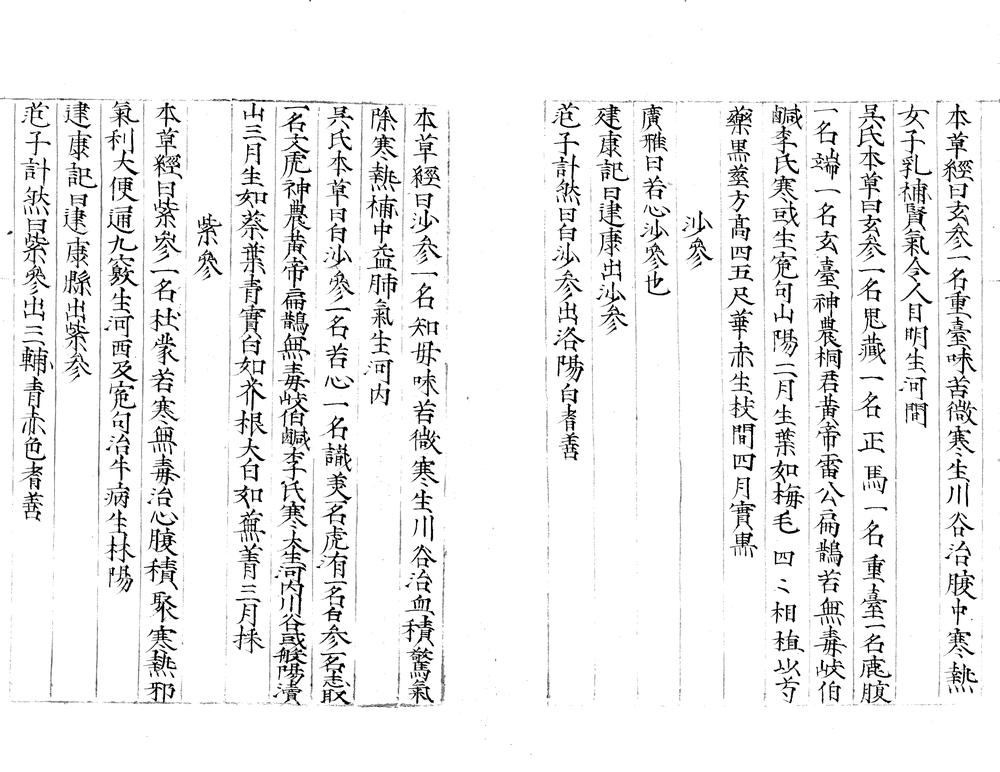 本草經曰玄參一名重臺味苦微寒生川谷治腹中寒熱
女子乳補腎氣令人目明生河間
吳氏本草曰玄參一名鬼藏一名正馬一名重臺一名鹿腹
一名端一名玄臺神農桐君黃帝雷公扁鵲苦無毒岐伯
鹹李氏寒或生寃句山陽二月生葉如梅毛四〻相植以芍
藥黑莖方高四五尺華赤生枝間四月實黑
沙參
廣雅曰苦心沙參也
建康記曰建康出沙參
范子計然曰白沙參出洛陽白者善
本草經曰沙參一名知毋味苦微寒生川谷治血積驚氣
除寒熱補中益肺氣生河內
吳氏本草曰白沙參一名苦心一名識美一名虎洧一名白參一名志取
一名文虎神農黃帝扁鵲無毒岐伯鹹李氏寒大生河內川谷或般陽瀆
山三月生如葵葉青實白如芥根大白如蕪菁三月採
紫參
本草經曰紫參一名杜蒙苦寒無毒治心腹積聚寒熱邪
氣利大便通九竅生河西及寃句治牛病生林陽
建康記曰建康縣出紫參
范子計然曰紫參出三輔青赤色者善